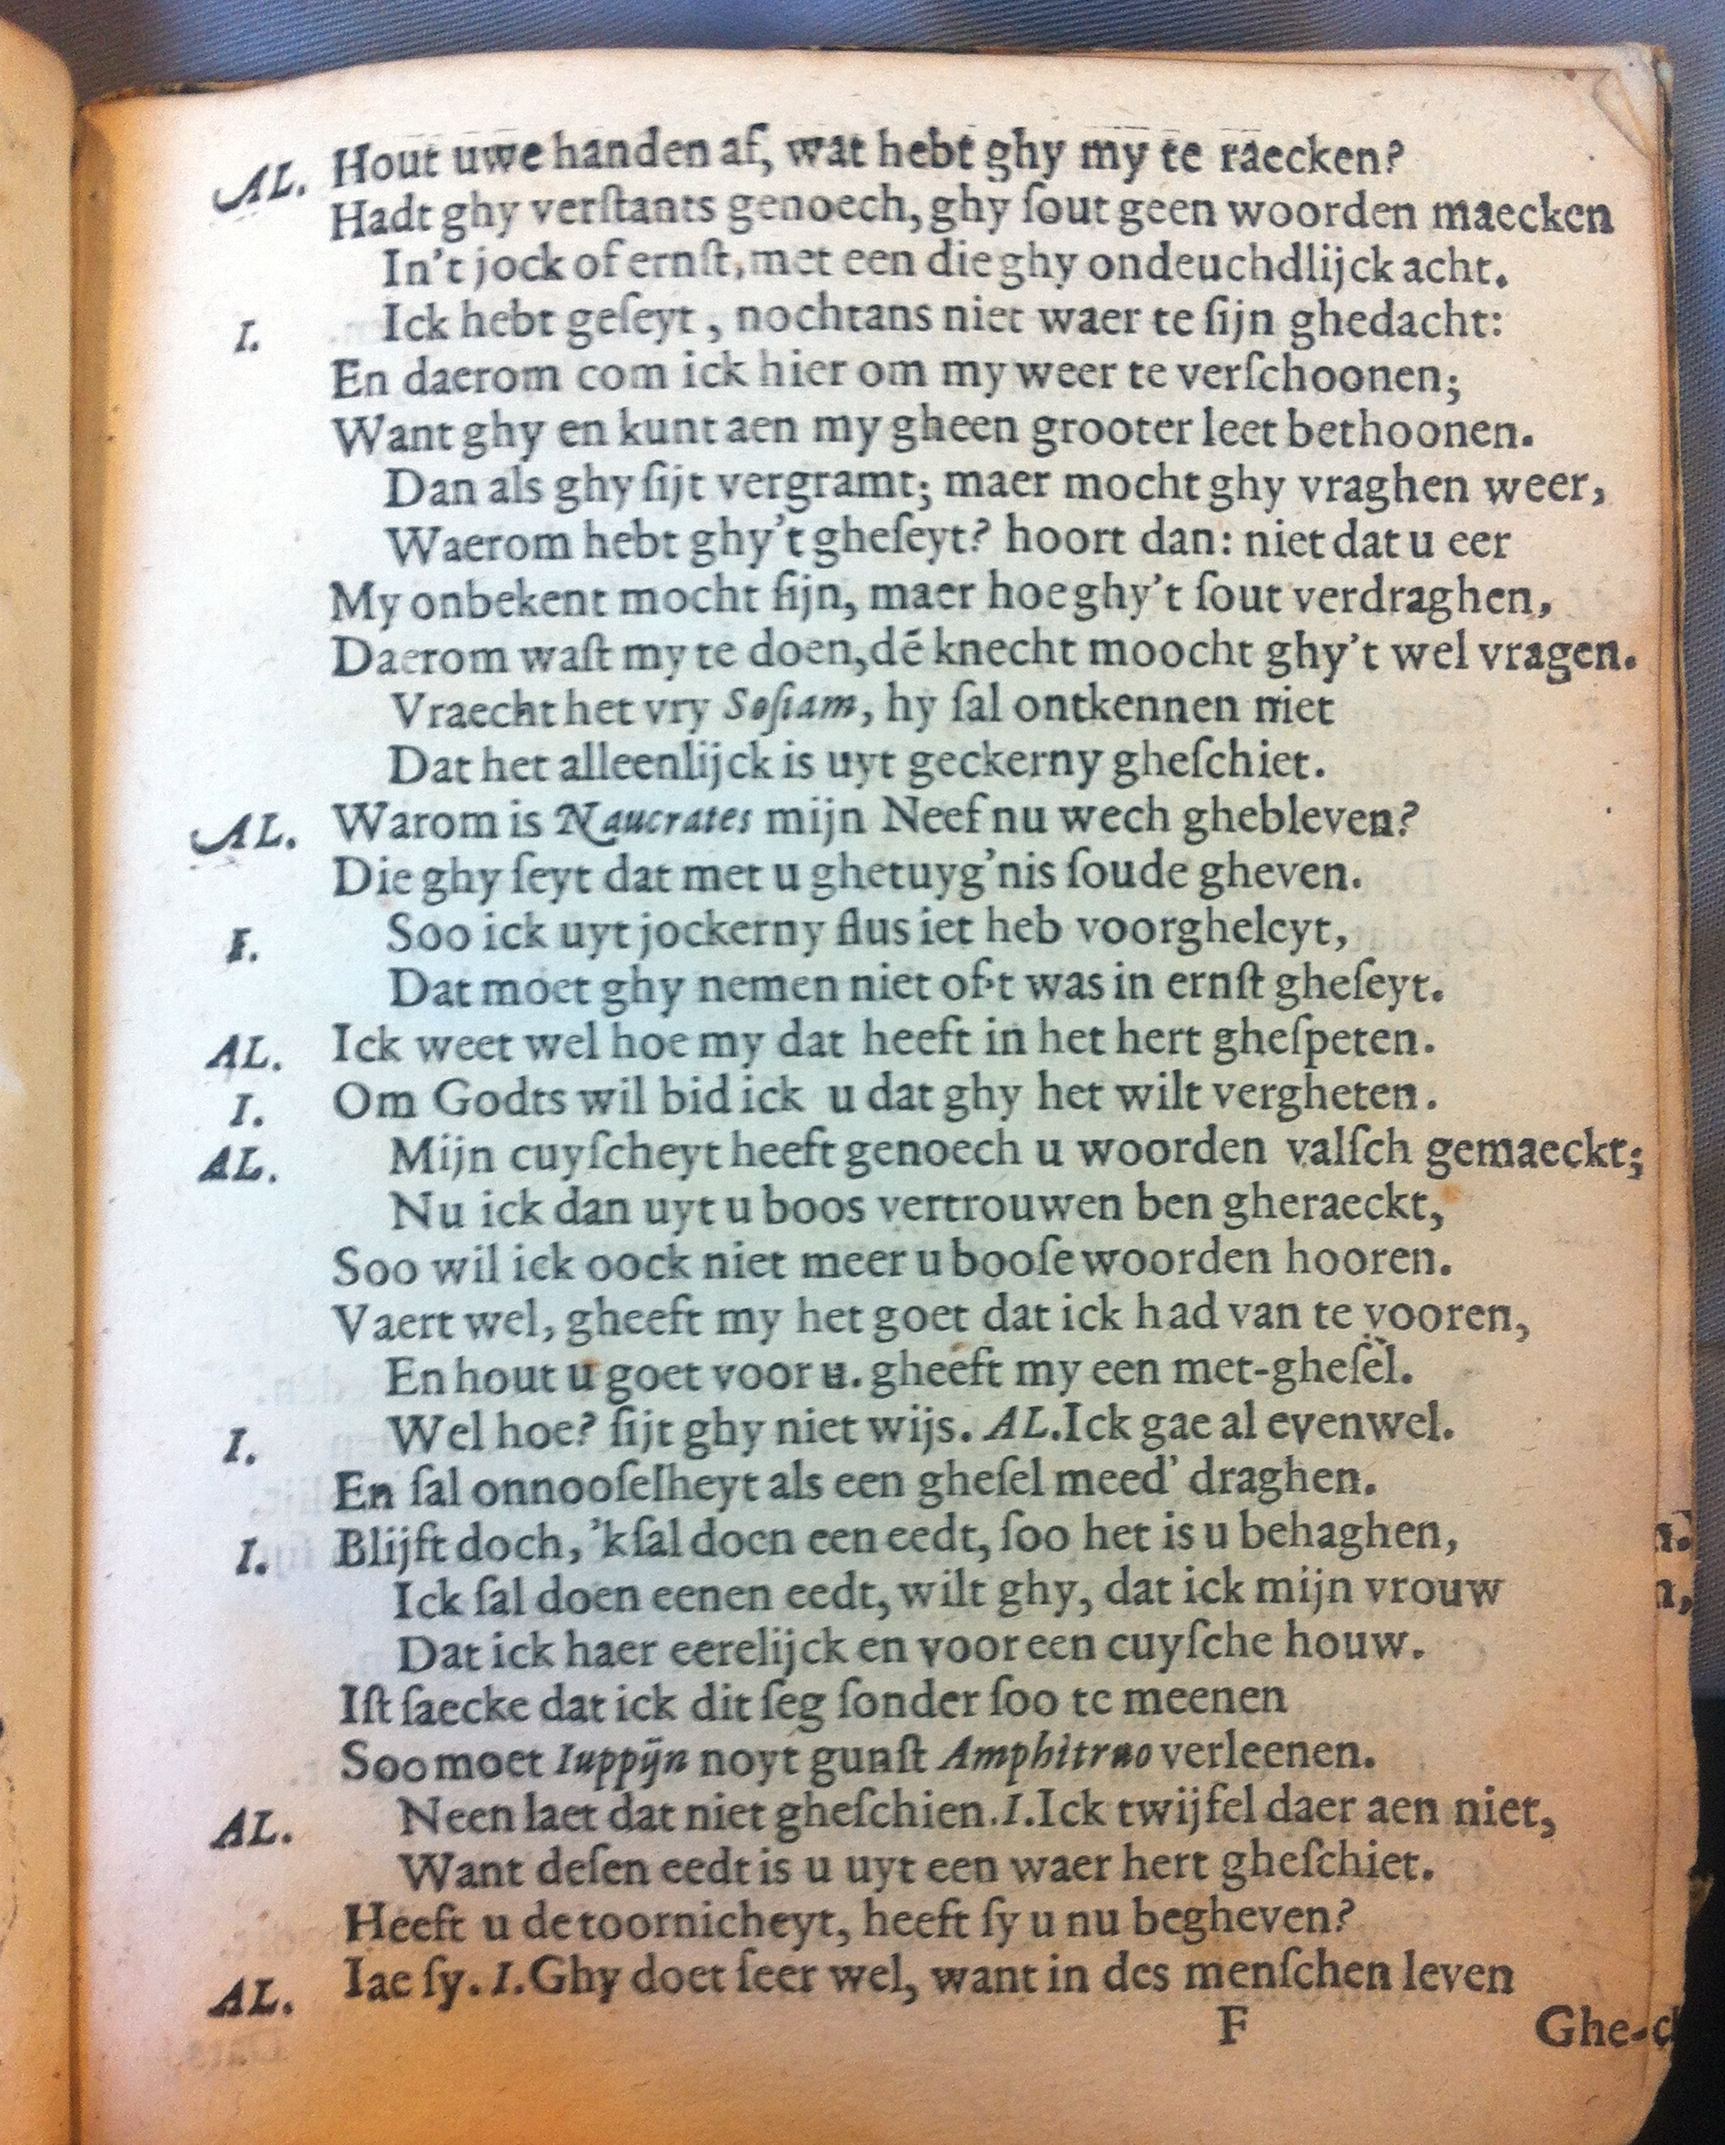 AL. Hout uwe handen af, wat hebt ghy my te raecken?
Hadt ghy verſtants genoech, ghy ſout geen woorden maecken
In't jock of ernſt, met een die ghy ondeuchdlijck acht.
I. Ick hebt geſeyt, nochtans niet waer te ſijn ghedacht:
En daerom com ick hier om my weer te verſchoonen;
Want ghy en kunt aen my gheen grooter leet bethoonen.
Dan als ghy ſijt vergramt; maer mocht ghy vraghen weer,
Waerom hebt ghy't gheſeyt? hoort dan: niet dat u eer
My onbekent mocht ſijn, maer hoe ghy't ſout verdraghen,
Daerom waſt my te doen, dē knecht moocht ghy't wel vragen.
Vraecht het vry Soſiam, hy ſal ontkennen niet
Dat het alleenlijck is uyt geckerny gheſchiet.
AL. Warom is Naucrates mijn Neef nu wech ghebleven?
Die ghy ſeyt dat met u ghetuyg'nis ſoude gheven.
I. Soo ick uyt jockerny flus iet heb voorgheleyt,
Dat moet ghy nemen niet of't was in ernſt gheſeyt.
AL. Ick weet wel hoe my dat heeft in het hert gheſpeten.
I. Om Godts wil bid ick u dat ghy het wilt vergheten.
AL. Mijn cuyſcheyt heeft genoech u woorden valſch gemaeckt;
Nu ick dan uyt u boos vertrouwen ben gheraeckt,
Soo wil ick oock niet meer u booſe woorden hooren.
Vaert wel, gheeft my het goet dat ick had van te vooren,
En hout u goet voor u. gheeft my een met-gheſèl.
I. Wel hoe? ſijt ghy niet wijs. AL. Ick gae al evenwel.
En ſal onnooſelheyt als een gheſel meed' draghen.
I. Blijft doch, 'kſal doen een eedt, ſoo het is u behaghen,
Ick ſal doen eenen eedt, wilt ghy, dat ick mijn vrouw
Dat ick haer eerelijck en voor een cuyſche houw.
Iſt ſaecke dat ick dit ſeg ſonder ſoo te meenen
Soo moet Iuppijn noyt gunſt Amphitruo verleenen.
AL. Neen laet dat niet gheſchien. I. Ick twijfel daer aen niet,
Want deſen eedt is u uyt een waer hert gheſchiet.
Heeft u de toornicheyt, heeft ſy u nu begheven?
AL. Iae ſy. I. Ghy doet ſeer wel, want in des menſchen leven
F Ghe-